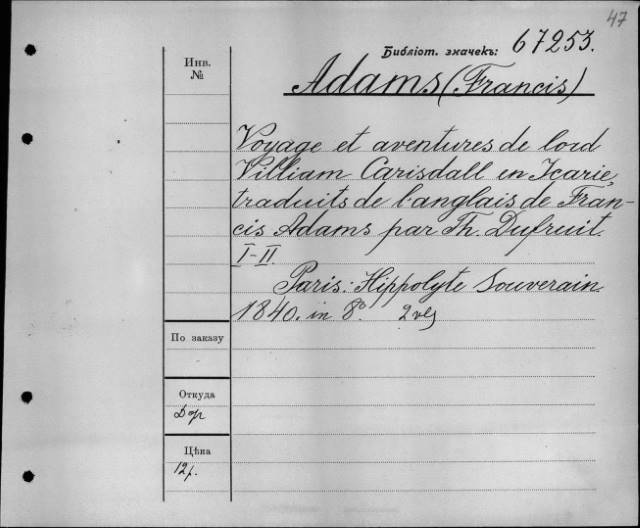 47
Библіот. значекъ: 67253.
Инв.
№
Adams (Francis)
Voyage et aventures de lord
Villiam Carisdall en Icarie,
traduits de l'anglais de Fran-
cis Adams par Th. Dufruit.
I-II.
Paris: Hippolyte Souverain.
1840. in 8°. 2 vls
По заказу
Откуда
Дор
Цѣна
12р.